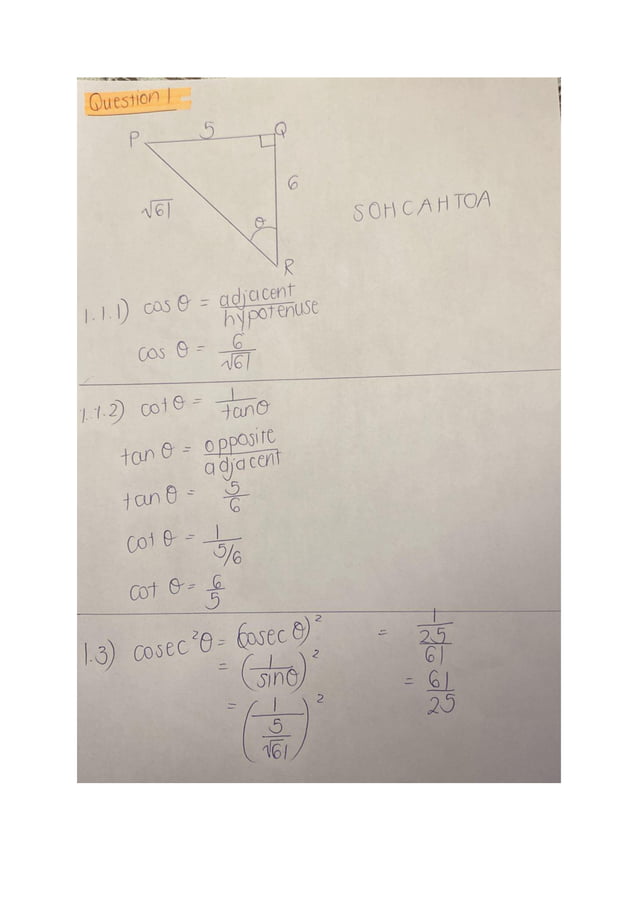 Question 1
P 5 Q
6
√61
θ
R
SOHCAHTOA
1.1.1) cos θ = adjacent / hypotenuse
cos θ = 6/√61
1.1.2) cot θ = 1/tanθ
tan θ = opposite / adjacent
tan θ = 5/6
cot θ = 1/(5/6)
cot θ = 6/5
1.3) cosec²θ = (cosec θ)²
= (1/sinθ)²
= (1/(5/√61))²
= 1/(25/61)
= 61/25